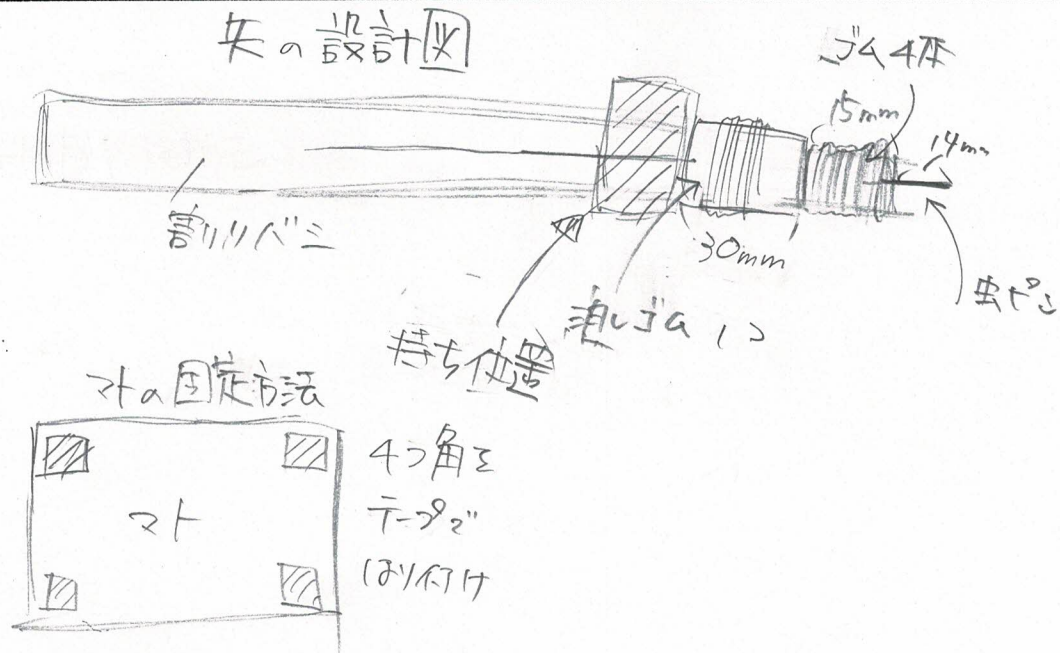 矢の設計図
ゴム4本
15mm
14mm
割りバシ
30mm
虫ピン
消しゴム 1コ
持ち位置
マトの固定方法
マト
4つ角を
テープで
はり付け